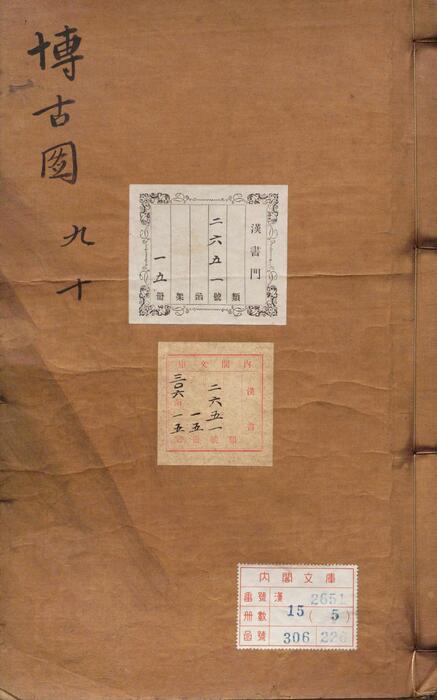 博古圖
九十
漢書門
二六五一
一五
類號函架冊
內閣文庫
漢書
二六五一
一五
三〇六
一五
內閣文庫
番號 漢 2651
冊數 15 ( 5 )
函號 306 226